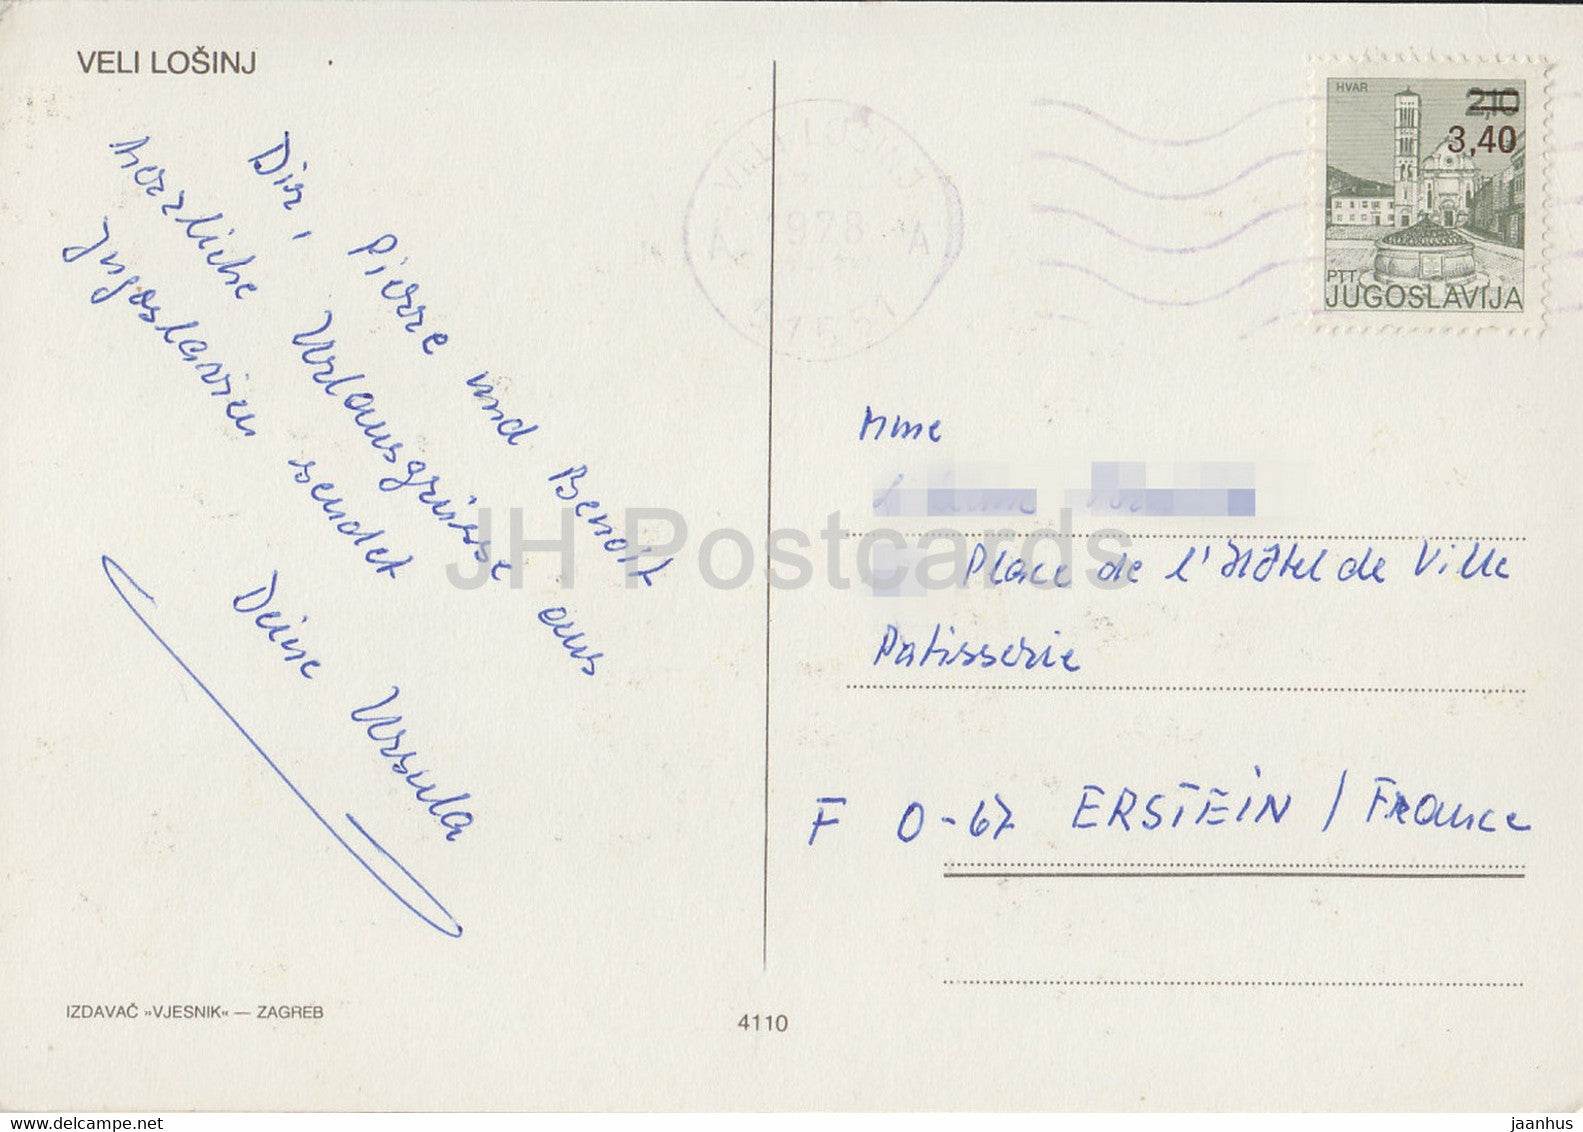 VELI LOŠINJ
Dir, Pierre und Benoit
herzliche Urlaubsgrüsse aus
Jugoslavien sendet
Deine Ursula
IZDAVAČ »VJESNIK« — ZAGREB
4110
HVAR
2,10
3,40
PTT
JUGOSLAVIJA
1978
Mme
Place de l'Hôtel de Ville
Patisserie
F 0-67 ERSTEIN / France
JH Postcards
www.delcampe.net
jaanhus